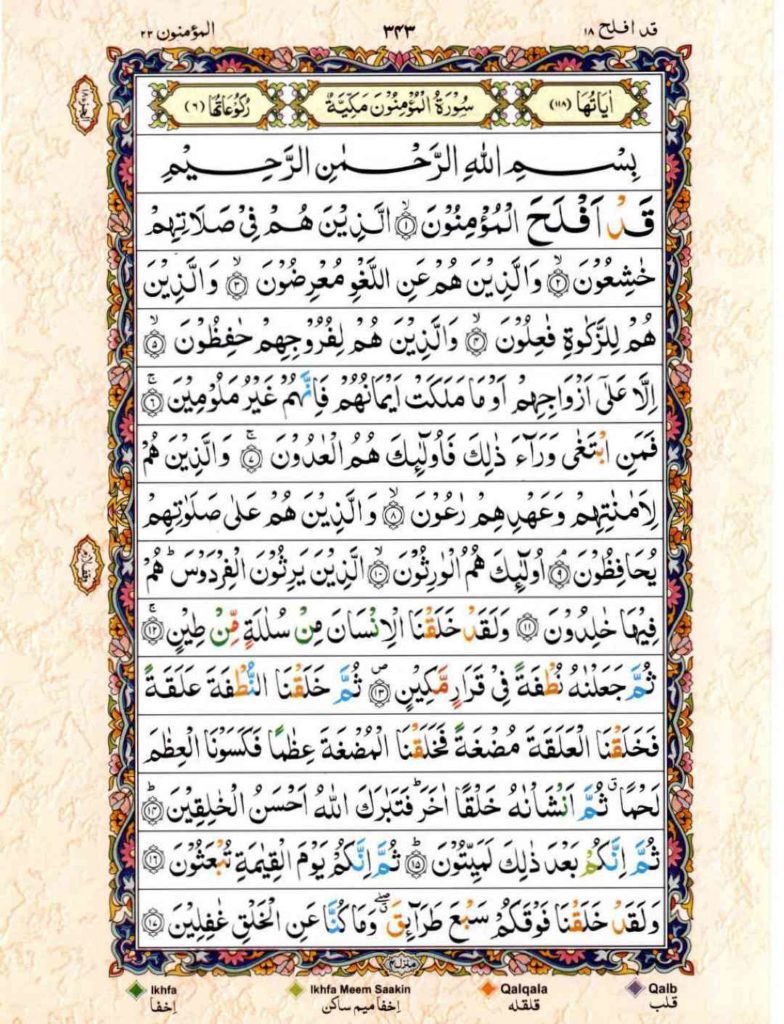 قد افلح ۱۸
۳۴۳
المؤمنون ۲۳
اٰيَاتُهَا (۱۱۸)
سُوْرَةُ الْمُؤْمِنُوْنَ مَكِّيَّةٌ
رُكُوْعَاتُهَا (۶)
بِسْمِ اللهِ الرَّحْمٰنِ الرَّحِيْمِ
قَدْ اَفْلَحَ الْمُؤْمِنُوْنَ ۙ﴿۱﴾ الَّذِيْنَ هُمْ فِىْ صَلَاتِهِمْ
خٰشِعُوْنَ ۙ﴿۲﴾ وَالَّذِيْنَ هُمْ عَنِ اللَّغْوِ مُعْرِضُوْنَ ۙ﴿۳﴾ وَالَّذِيْنَ
هُمْ لِلزَّكٰوةِ فٰعِلُوْنَ ۙ﴿۴﴾ وَالَّذِيْنَ هُمْ لِفُرُوْجِهِمْ حٰفِظُوْنَ ۙ﴿۵﴾
اِلَّا عَلٰٓى اَزْوَاجِهِمْ اَوْ مَا مَلَكَتْ اَيْمَانُهُمْ فَاِنَّهُمْ غَيْرُ مَلُوْمِيْنَ ۚ﴿۶﴾
فَمَنِ ابْتَغٰى وَرَآءَ ذٰلِكَ فَاُولٰٓئِكَ هُمُ الْعٰدُوْنَ ۚ﴿۷﴾ وَالَّذِيْنَ هُمْ
لِاَمٰنٰتِهِمْ وَعَهْدِهِمْ رٰعُوْنَ ۙ﴿۸﴾ وَالَّذِيْنَ هُمْ عَلٰى صَلَوٰتِهِمْ
يُحَافِظُوْنَ ۘ﴿۹﴾ اُولٰٓئِكَ هُمُ الْوٰرِثُوْنَ ۙ﴿۱۰﴾ الَّذِيْنَ يَرِثُوْنَ الْفِرْدَوْسَ ؕ هُمْ
فِيْهَا خٰلِدُوْنَ ﴿۱۱﴾ وَلَقَدْ خَلَقْنَا الْاِنْسَانَ مِنْ سُلٰلَةٍ مِّنْ طِيْنٍ ۚ﴿۱۲﴾
ثُمَّ جَعَلْنٰهُ نُطْفَةً فِىْ قَرَارٍ مَّكِيْنٍ ۪﴿۱۳﴾ ثُمَّ خَلَقْنَا النُّطْفَةَ عَلَقَةً
فَخَلَقْنَا الْعَلَقَةَ مُضْغَةً فَخَلَقْنَا الْمُضْغَةَ عِظٰمًا فَكَسَوْنَا الْعِظٰمَ
لَحْمًا ۗ ثُمَّ اَنْشَاْنٰهُ خَلْقًا اٰخَرَ ؕ فَتَبٰرَكَ اللهُ اَحْسَنُ الْخٰلِقِيْنَ ؕ﴿۱۴﴾
ثُمَّ اِنَّكُمْ بَعْدَ ذٰلِكَ لَمَيِّتُوْنَ ؕ﴿۱۵﴾ ثُمَّ اِنَّكُمْ يَوْمَ الْقِيٰمَةِ تُبْعَثُوْنَ ﴿۱۶﴾
وَلَقَدْ خَلَقْنَا فَوْقَكُمْ سَبْعَ طَرَآئِقَ ۖ وَمَا كُنَّا عَنِ الْخَلْقِ غٰفِلِيْنَ ﴿۱۷﴾
منزل ۴
Ikhfa
اِخفا
Ikhfa Meem Saakin
اِخفا میم ساکن
Qalqala
قلقله
Qalb
قلب